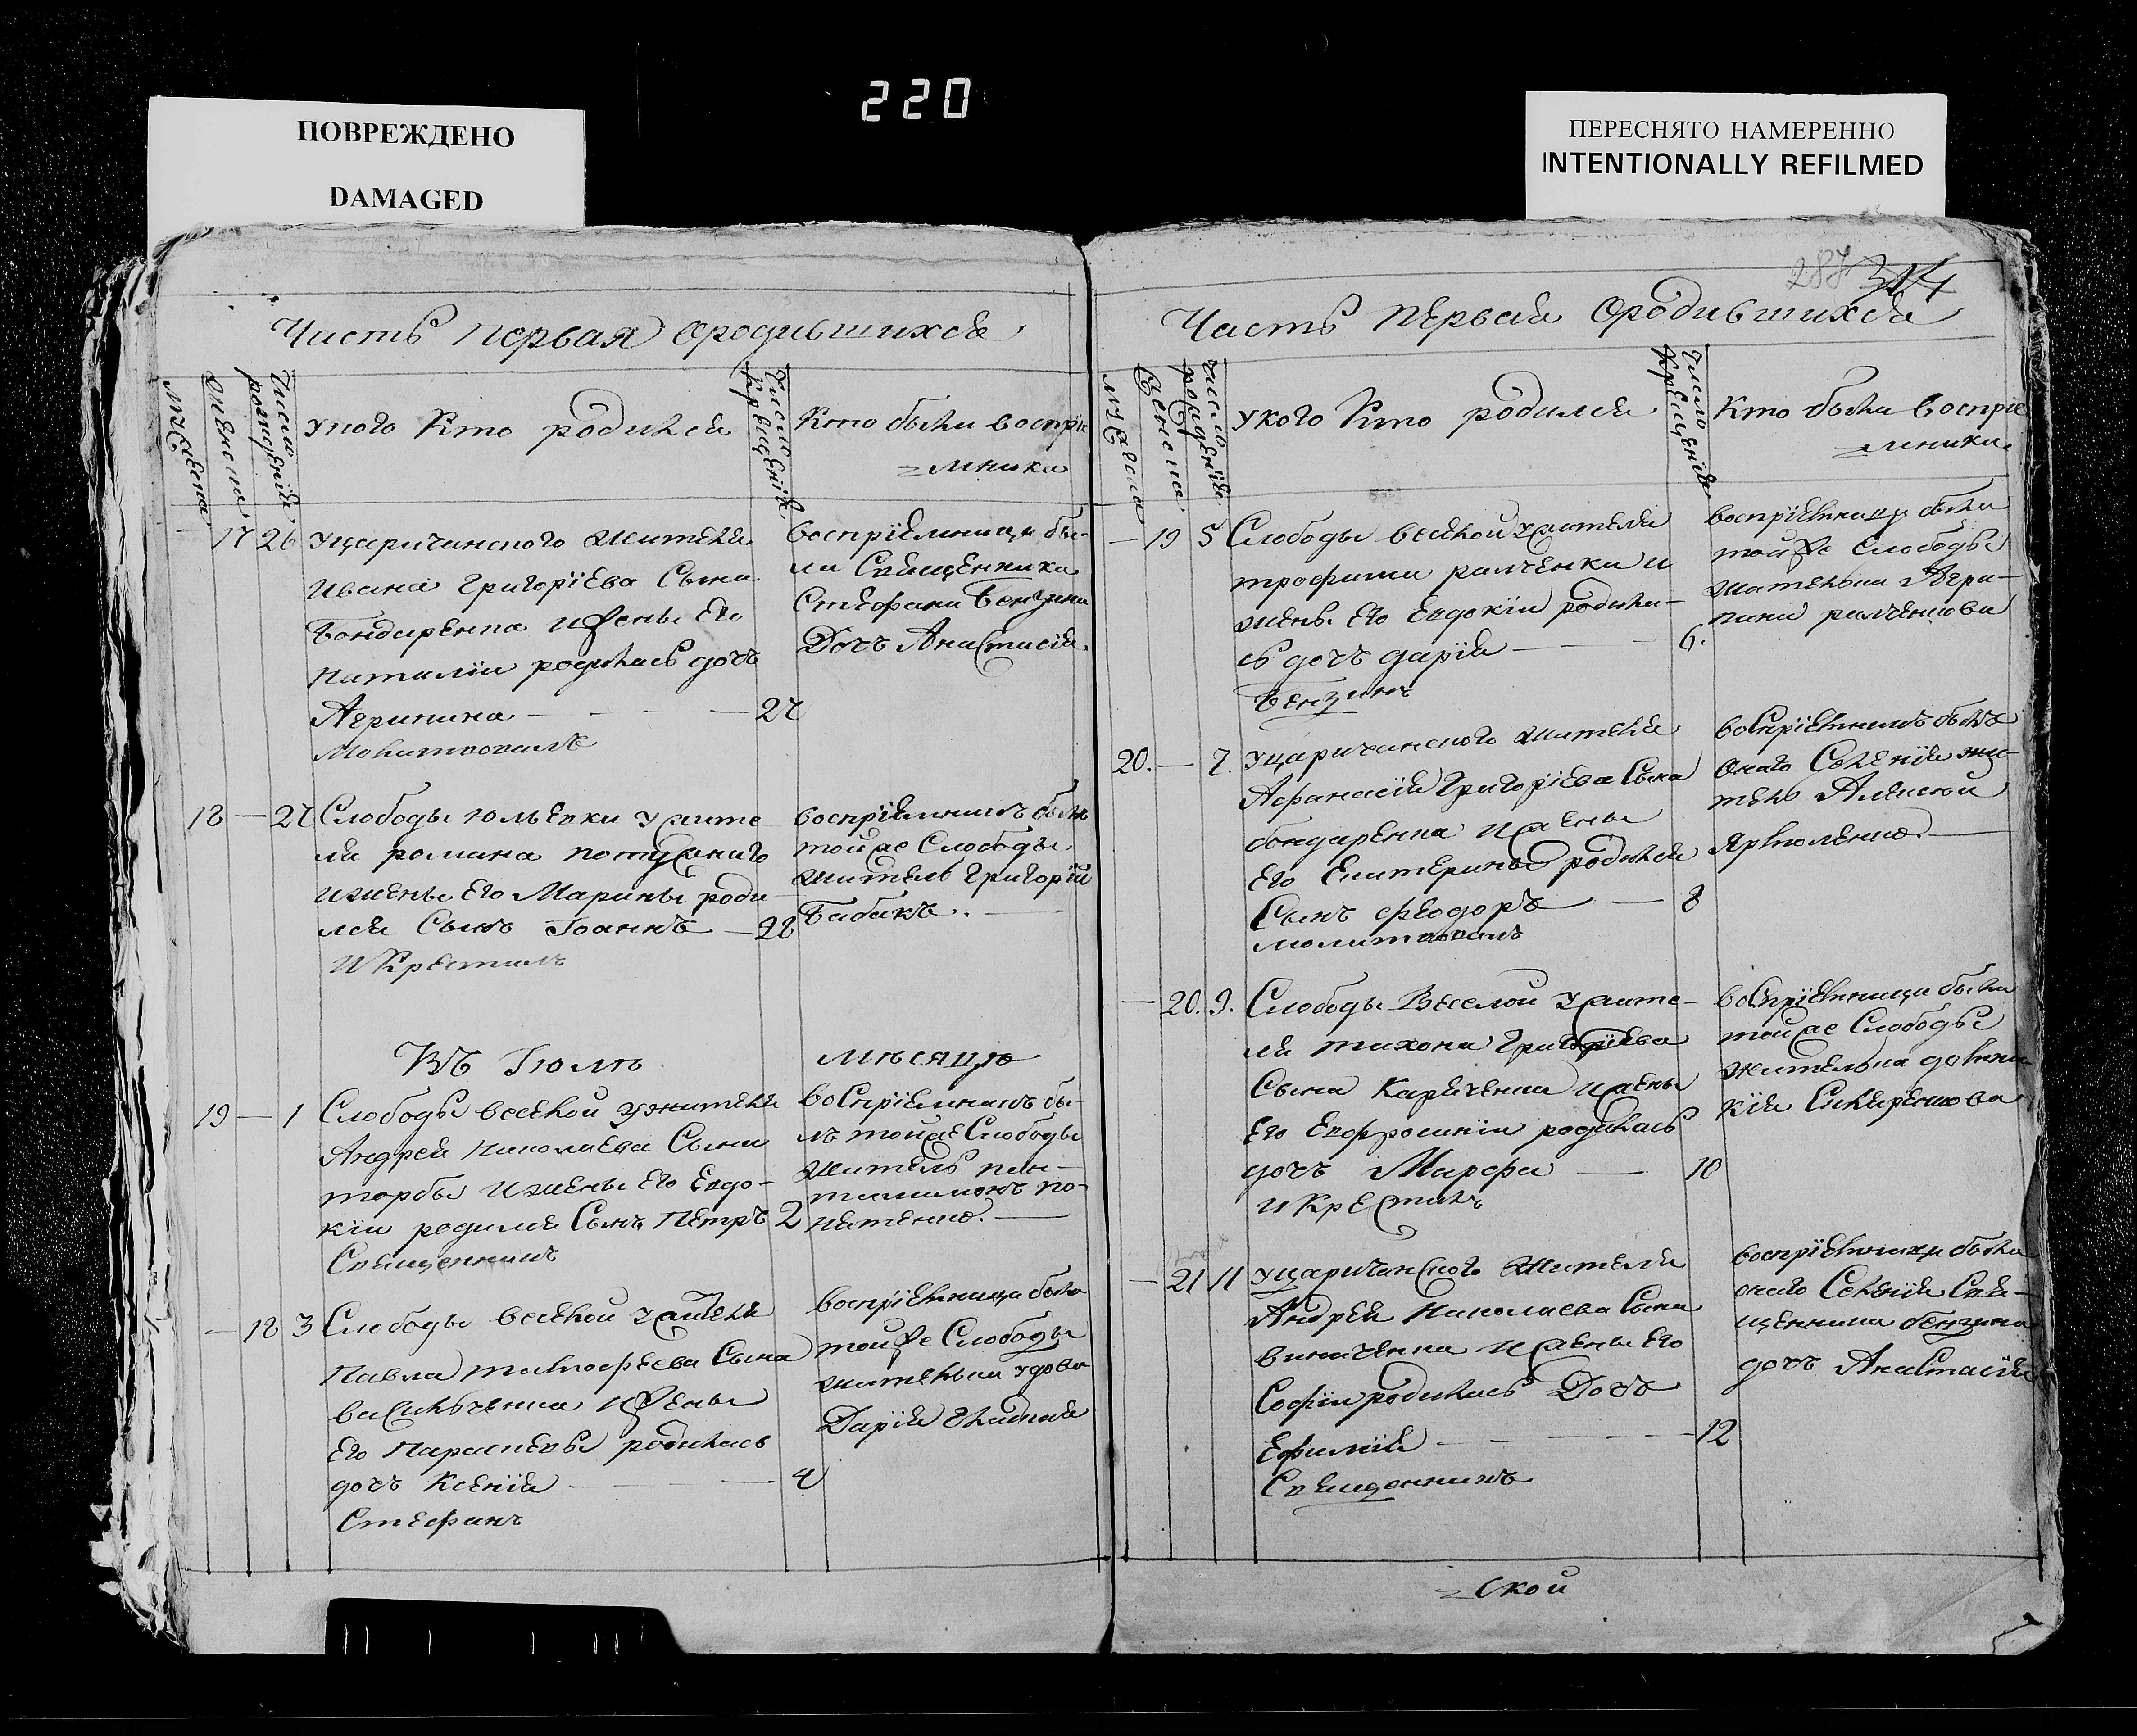 220
ПОВРЕЖДЕНО
DAMAGED
ПЕРЕСНЯТО НАМЕРЕННО
INTENTIONALLY REFILMED
Часть первая ородившихся
мужеска
женска
число рожденія
укого кто родился
число крещенія
кто были воспріе
=мники
17 26 уцаричанского жителя
Ивана григоріева сына
бондаренка ижены его
наталіи родилась дочъ
Агрипина 27
Молитвовалъ
воспріемница бы-
ла священника
Стефана бензина
Дочъ Анастасія
18 — 27 Слободы юльевки ужите
ля романа
ижены его Марины роди
лся сынъ Іоаннъ — 28
И крестилъ
воспріемникъ былъ
тойже слободы
житель григорій
Бабакъ.
Въ Іюлѣ мѣсяцѣ
19 — 1 Слободы веселой ужителя
Андрея николаева сына
торбы ижены его евдо-
кіи родился сынъ петръ 2
Священникъ
воспріемникъ бы-
лъ тойже слободы
житель пан-
телимонъ
— 18 3 Слободы веселой ужителя
Павла тимофеева сына
васильченка ижены
его параскевы родилась
дочъ ксенія 4
Стефанъ
воспріемница была
тойже слободы
жителька удова
Дарія гладкая
287 314
Часть первая ородившихся
мужеска
женска
число рожденія
укого кто родился
число крещенія
кто были воспріе
=мники.
— 19 5 Слободы веселой ужителя
трофима ралченка и
жены его евдокіи родила-
сь дочъ дарія 6.
Бензинъ
воспріемница была
тойже слободы
жителька Агри-
пина ралченкова
20. — 7. уцаричанского жителя
Афанасія григоріева сына
бондаренка ижены
его екатерины родился
сынъ феодоръ — 8
молитвовалъ
воспріемникъ былъ
оного селенія жи-
тель Алексей
Ярмоленко.
— 20. 9. Слободы Веселой ужите-
ля тихона григоріева
сына ижены
его евфросиніи родилась
дочъ Марфа — 10
и крестилъ
воспріемница была
тойже слободы
жителька
кія
— 21 11 уцаричанского жителя
Андрея николаева сына
виниченка ижены его
софіи родилась Дочъ
Ефимія 12
Священникъ
воспріемница была
оного селенія свя-
щенника бензина
дочъ Анастасія
=ской